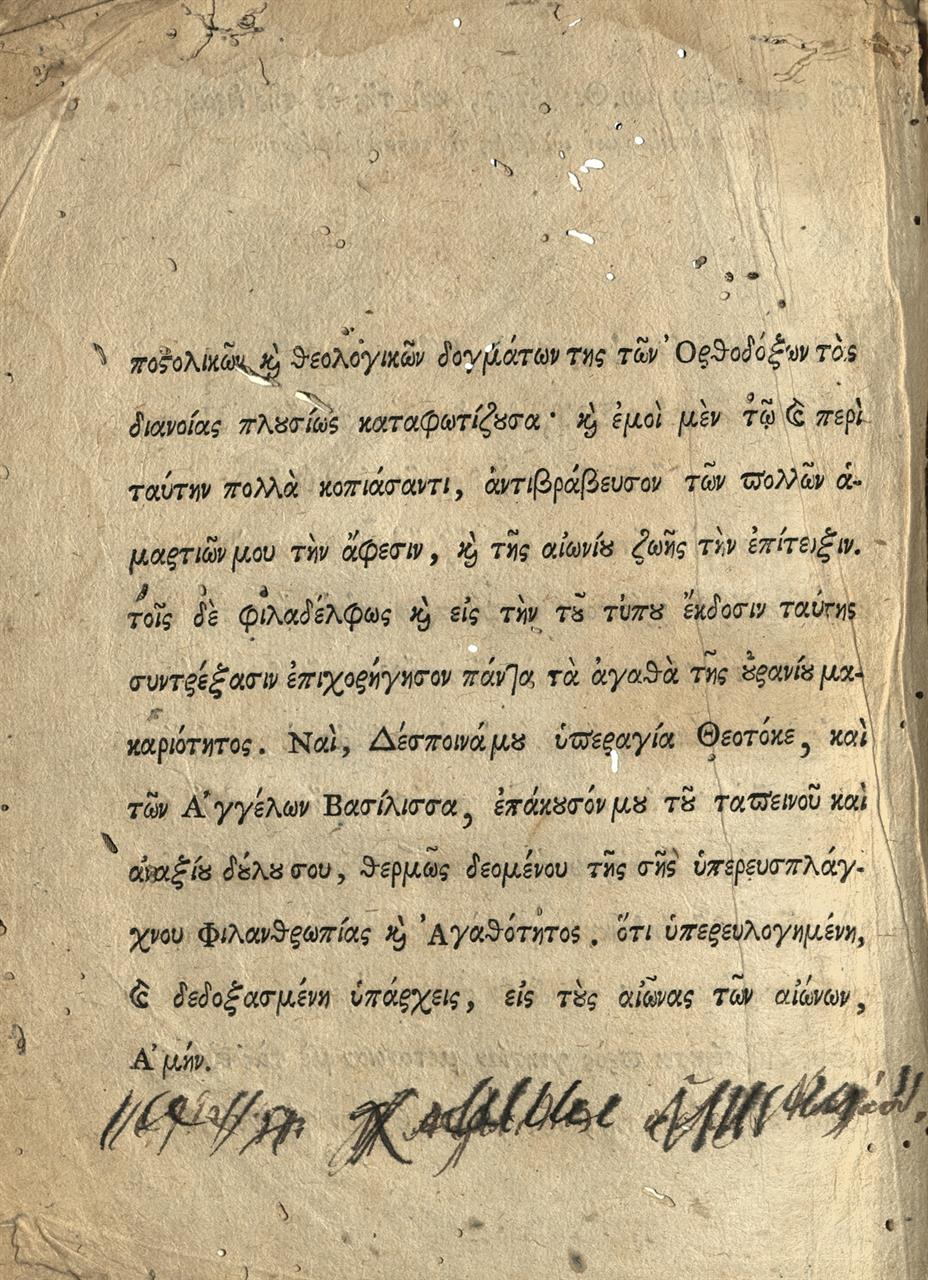 ποϛολικῶν ϗ̀ θεολογικῶν δογμάτων της τῶν Ὀρθοδόξων τȣ̀ς
διανοίας πλȣσίως καταφωτίζȣσα· ϗ̀ ἐμοὶ μὲν τῷ ϗ̀ περὶ
ταύτην πολλὰ κοπιάσαντι, ἀντιβράβευσον τῶν ϖολλῶν ἁ-
μαρτιῶν μου τὴν ἄφεσιν, ϗ̀ τῆς αἰωνίȣ ζωῆς τὴν ἐπίτευξιν.
τοῖς δὲ φιλαδέλφως ϗ̀ εἰς τὴν τȣ͂ τύπȣ ἔκδοσιν ταύτης
συντρέξασιν ἐπιχορήγησον πάντα τὰ ἀγαθὰ τῆς ȣ̓ρανίȣ μα-
καριότητος. Ναὶ, Δέσποινάμȣ ὑϖεραγία Θεοτόκε, καὶ
τῶν Ἀγγέλων Βασίλισσα, ἐπάκȣσόνμȣ τȣ͂ ταϖεινοῦ καὶ
ἀναξίȣ δȣ́λȣ σου, θερμῶς δεομένου τῆς σῆς ὑπερευσπλάγ-
χνου Φιλανθρωπίας ϗ̀ Ἀγαθότητος. ὅτι ὑπερευλογημένη,
ϗ̀ δεδοξασμένη ὑπάρχεις, εἰς τȣ̀ς αἰῶνας τῶν αἰώνων,
Ἀμήν.